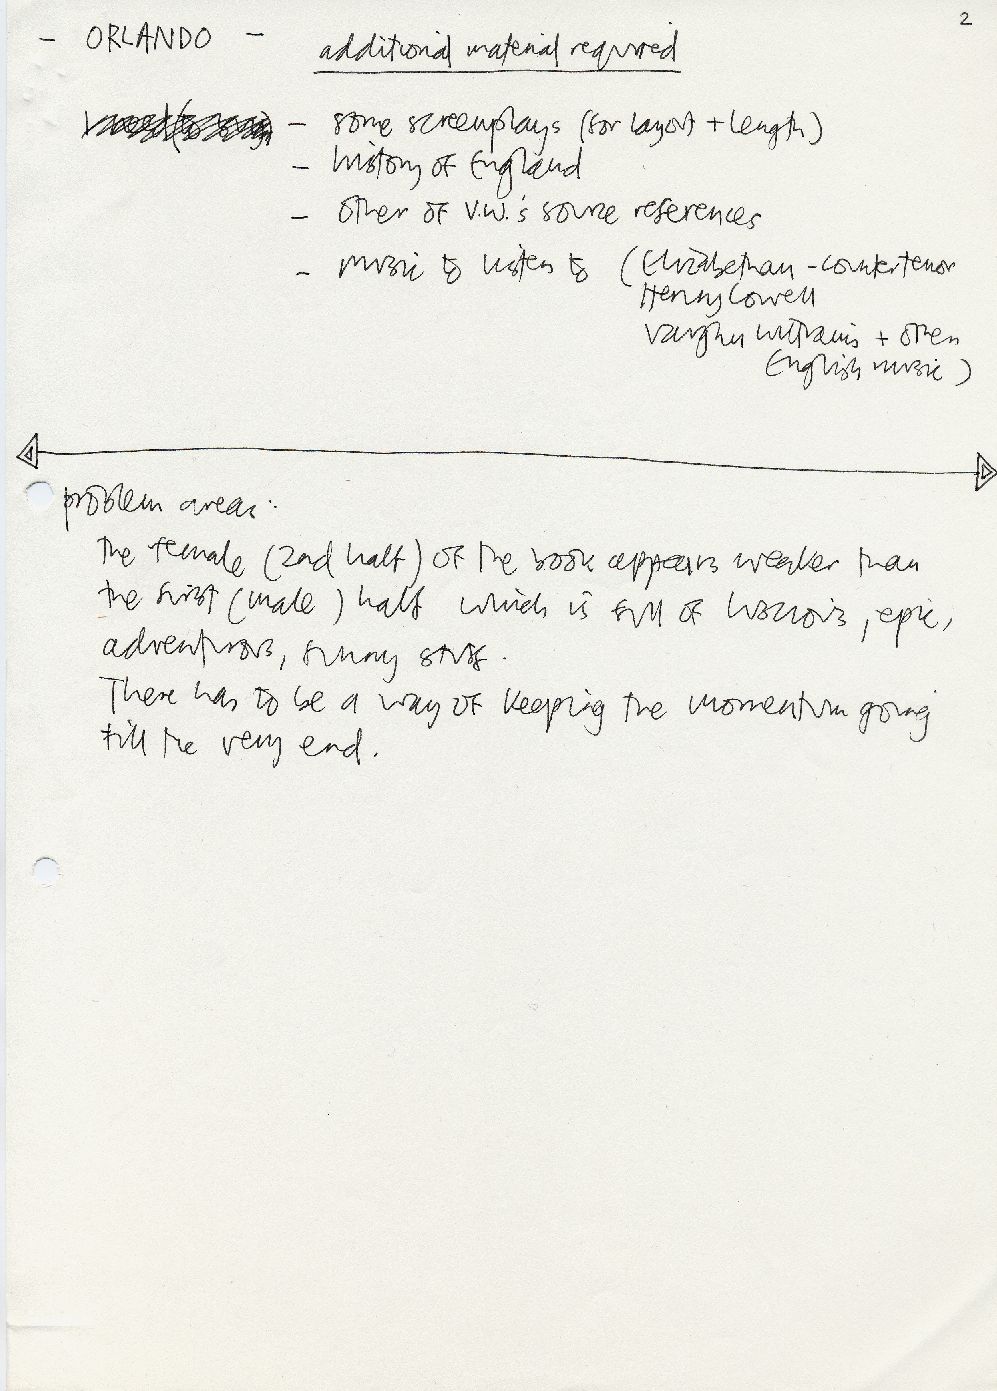 2
- ORLANDO -
additional material required
- some screenplays (for layout + length)
- history of England
- other of V.W.'s source references
- music to listen to (Elizabethan - countertenor
Henry Cowell
Vaughn Williams + other
English music)
problem areas:
the female (2nd half) of the book appears weaker than
the first (male) half which is full of luscious, epic,
adventurous, funny stuff.
There has to be a way of keeping the momentum going
till the very end.